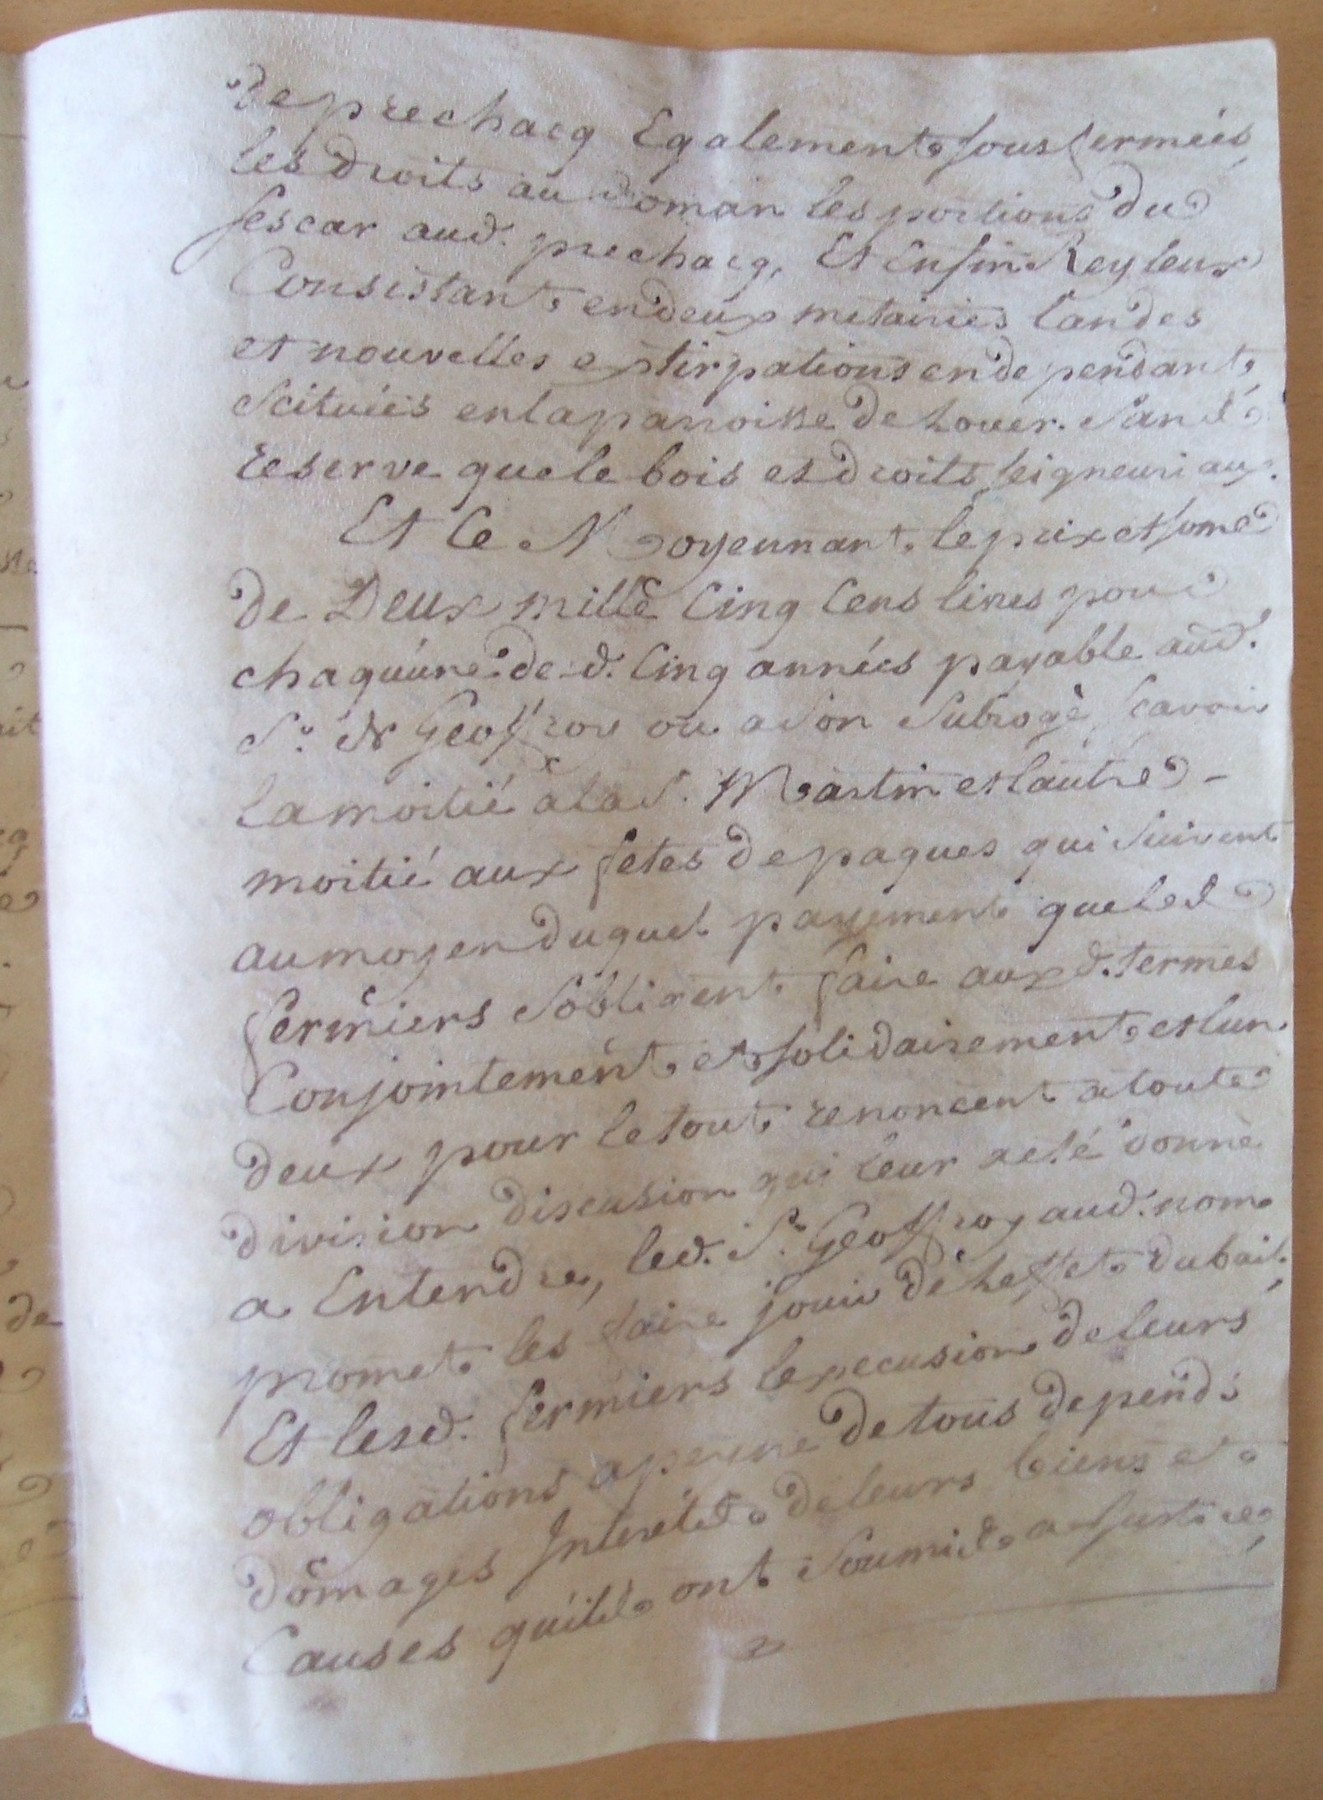 de prechacq Egalement sousfermées
les droits au Doman les portions du
fescar aud. prechacq, Et Enfin Reyleux
Consistant en deux metairies landes
et nouvelles extirpations en dependant
scituées en la parroisse de Louer. Sans
reserve que le bois et droits seigneuriaux.
Et Ce Moyennant le prix et some
de Deux mille Cinq Cens livres pour
chaquune de d. Cinq années payable aud.
Sr. de Geoffroy ou a son subrogè, scavoir
la moitié a la S. Martin et lautre -
moitié aux fetes de paques qui suivent
au moyen duquel payement que les d
fermiers s'obligent faire aux d. termes
Conjointement et solidairement et lun
deux pour le tout renoncent a toute
division discusion qui leur a eté donné
a Entendre, led. Sr. Geoffroy aud. nom
promet les faire jouir de Leffet du bail,
Et lesd. fermiers lexecusion de leurs
obligations a peine de tous depends
dômages Interéts de leurs biens et
Causes qu'ils ont soumis a Justice,